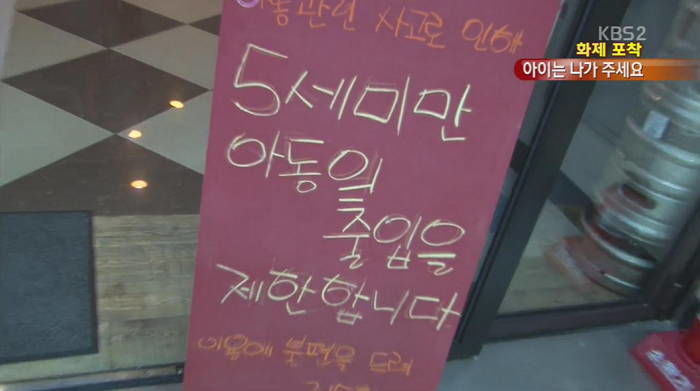 KBS2
화제 포착
아이는 나가 주세요
아동관련 사고로 인해
5세미만
아동의
출입을
제한합니다
이용에 불편을 드려